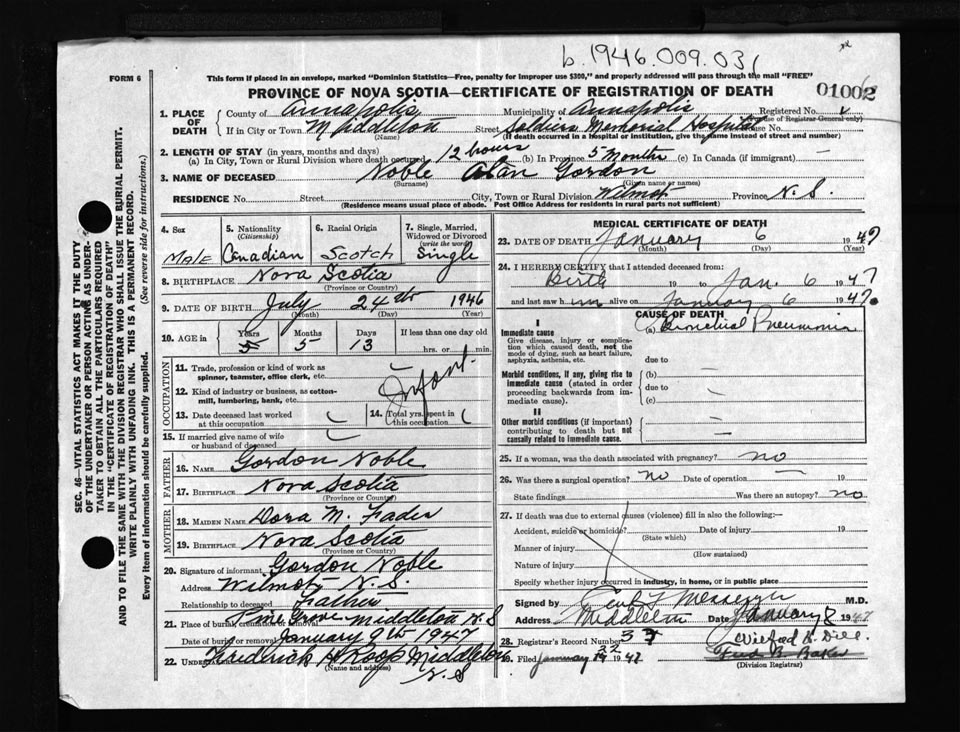 b. 1946.009.031
FORM 6
This form if placed in an envelope, marked "Dominion Statistics—Free, penalty for improper use $300," and properly addressed will pass through the mail "FREE"
PROVINCE OF NOVA SCOTIA—CERTIFICATE OF REGISTRATION OF DEATH
01002
1. PLACE OF DEATH
County of Annapolis Municipality of Annapolis Registered No.
(Use of Registrar General only)
If in City or Town Middleton Street Soldiers Memorial Hospital House No.
(Name) (If death occurred in a Hospital or institution, give the name instead of street and number)
2. LENGTH OF STAY (in years, months and days)
(a) In City, Town or Rural Division where death occurred 12 hours (b) In Province 5 months (c) In Canada (if immigrant) —
3. NAME OF DECEASED Noble Alan Gordon
(Surname) (Given name or names)
RESIDENCE No. Street City, Town or Rural Division Wilmot Province N. S.
(Residence means usual place of abode. Post Office Address for residents in rural parts not sufficient)
SEC. 46—VITAL STATISTICS ACT MAKES IT THE DUTY
OF THE UNDERTAKER OR PERSON ACTING AS UNDER-
TAKER TO OBTAIN ALL THE PARTICULARS REQUIRED
IN THE "CERTIFICATE OF REGISTRATION OF DEATH"
AND TO FILE THE SAME WITH THE DIVISION REGISTRAR WHO SHALL ISSUE THE BURIAL PERMIT.
WRITE PLAINLY WITH UNFADING INK. THIS IS A PERMANENT RECORD.
Every item of information should be carefully supplied. (See reverse side for instructions.)
4. Sex
Male
5. Nationality
(Citizenship)
Canadian
6. Racial Origin
Scotch
7. Single, Married, Widowed or Divorced
(write the word)
Single
8. BIRTHPLACE Nova Scotia
(Province or Country)
9. DATE OF BIRTH July 24th 1946
(Month) (Day) (Year)
10. AGE in
Years Months Days If less than one day old
5 5 13 hrs. or min.
OCCUPATION
11. Trade, profession or kind of work as
spinner, teamster, office clerk, etc. —
12. Kind of industry or business, as cotton-
mill, lumbering, bank, etc. Infant
13. Date deceased last worked
at this occupation
14. Total yrs. spent in
this occupation
15. If married give name of wife
or husband of deceased
FATHER
16. NAME Gordon Noble
17. BIRTHPLACE Nova Scotia
(Province or Country)
MOTHER
18. MAIDEN NAME Dora M. Fader
19. BIRTHPLACE Nova Scotia
(Province or Country)
20. Signature of informant Gordon Noble
Address Wilmot, N. S.
Relationship to deceased Father
21. Place of burial, cremation or removal Pine Grove Middleton N. S
Date of burial or removal January 9th 1947
22. UNDERTAKER Frederick H Roop Middleton
(Name and address) N. S
MEDICAL CERTIFICATE OF DEATH
23. DATE OF DEATH January 6 1947
(Month) (Day) (Year)
24. I HEREBY CERTIFY that I attended deceased from:
Birth 19 to Jan. 6 1947
and last saw him alive on January 6 1947.
CAUSE OF DEATH
I
Immediate cause (a) Bronchial Pneumonia
Give disease, injury or complica-
tion which caused death, not the
mode of dying, such as heart failure,
asphyxia, asthenia, etc.
due to
Morbid conditions, if any, giving rise to
immediate cause (stated in order
proceeding backwards from im-
mediate cause).
(b) —
due to
(c)
II
Other morbid conditions (if important)
contributing to death but not
causally related to immediate cause.
25. If a woman, was the death associated with pregnancy? no
26. Was there a surgical operation? no Date of operation — 19
State findings Was there an autopsy? no
27. If death was due to external causes (violence) fill in also the following:—
Accident, suicide or homicide? Date of injury 19
(State which)
Manner of injury
(How sustained)
Nature of injury
Specify whether injury occurred in industry, in home, or in public place
Signed by Messenger M.D.
Address Middleton Date January 8 1947
28. Registrar's Record Number 37
29. Filed January 22 1947
Wilfred H. Dill
Fred B. Baker
(Division Registrar)